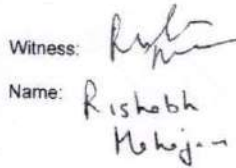 Witness:
Name: Rishabh
Mahajan